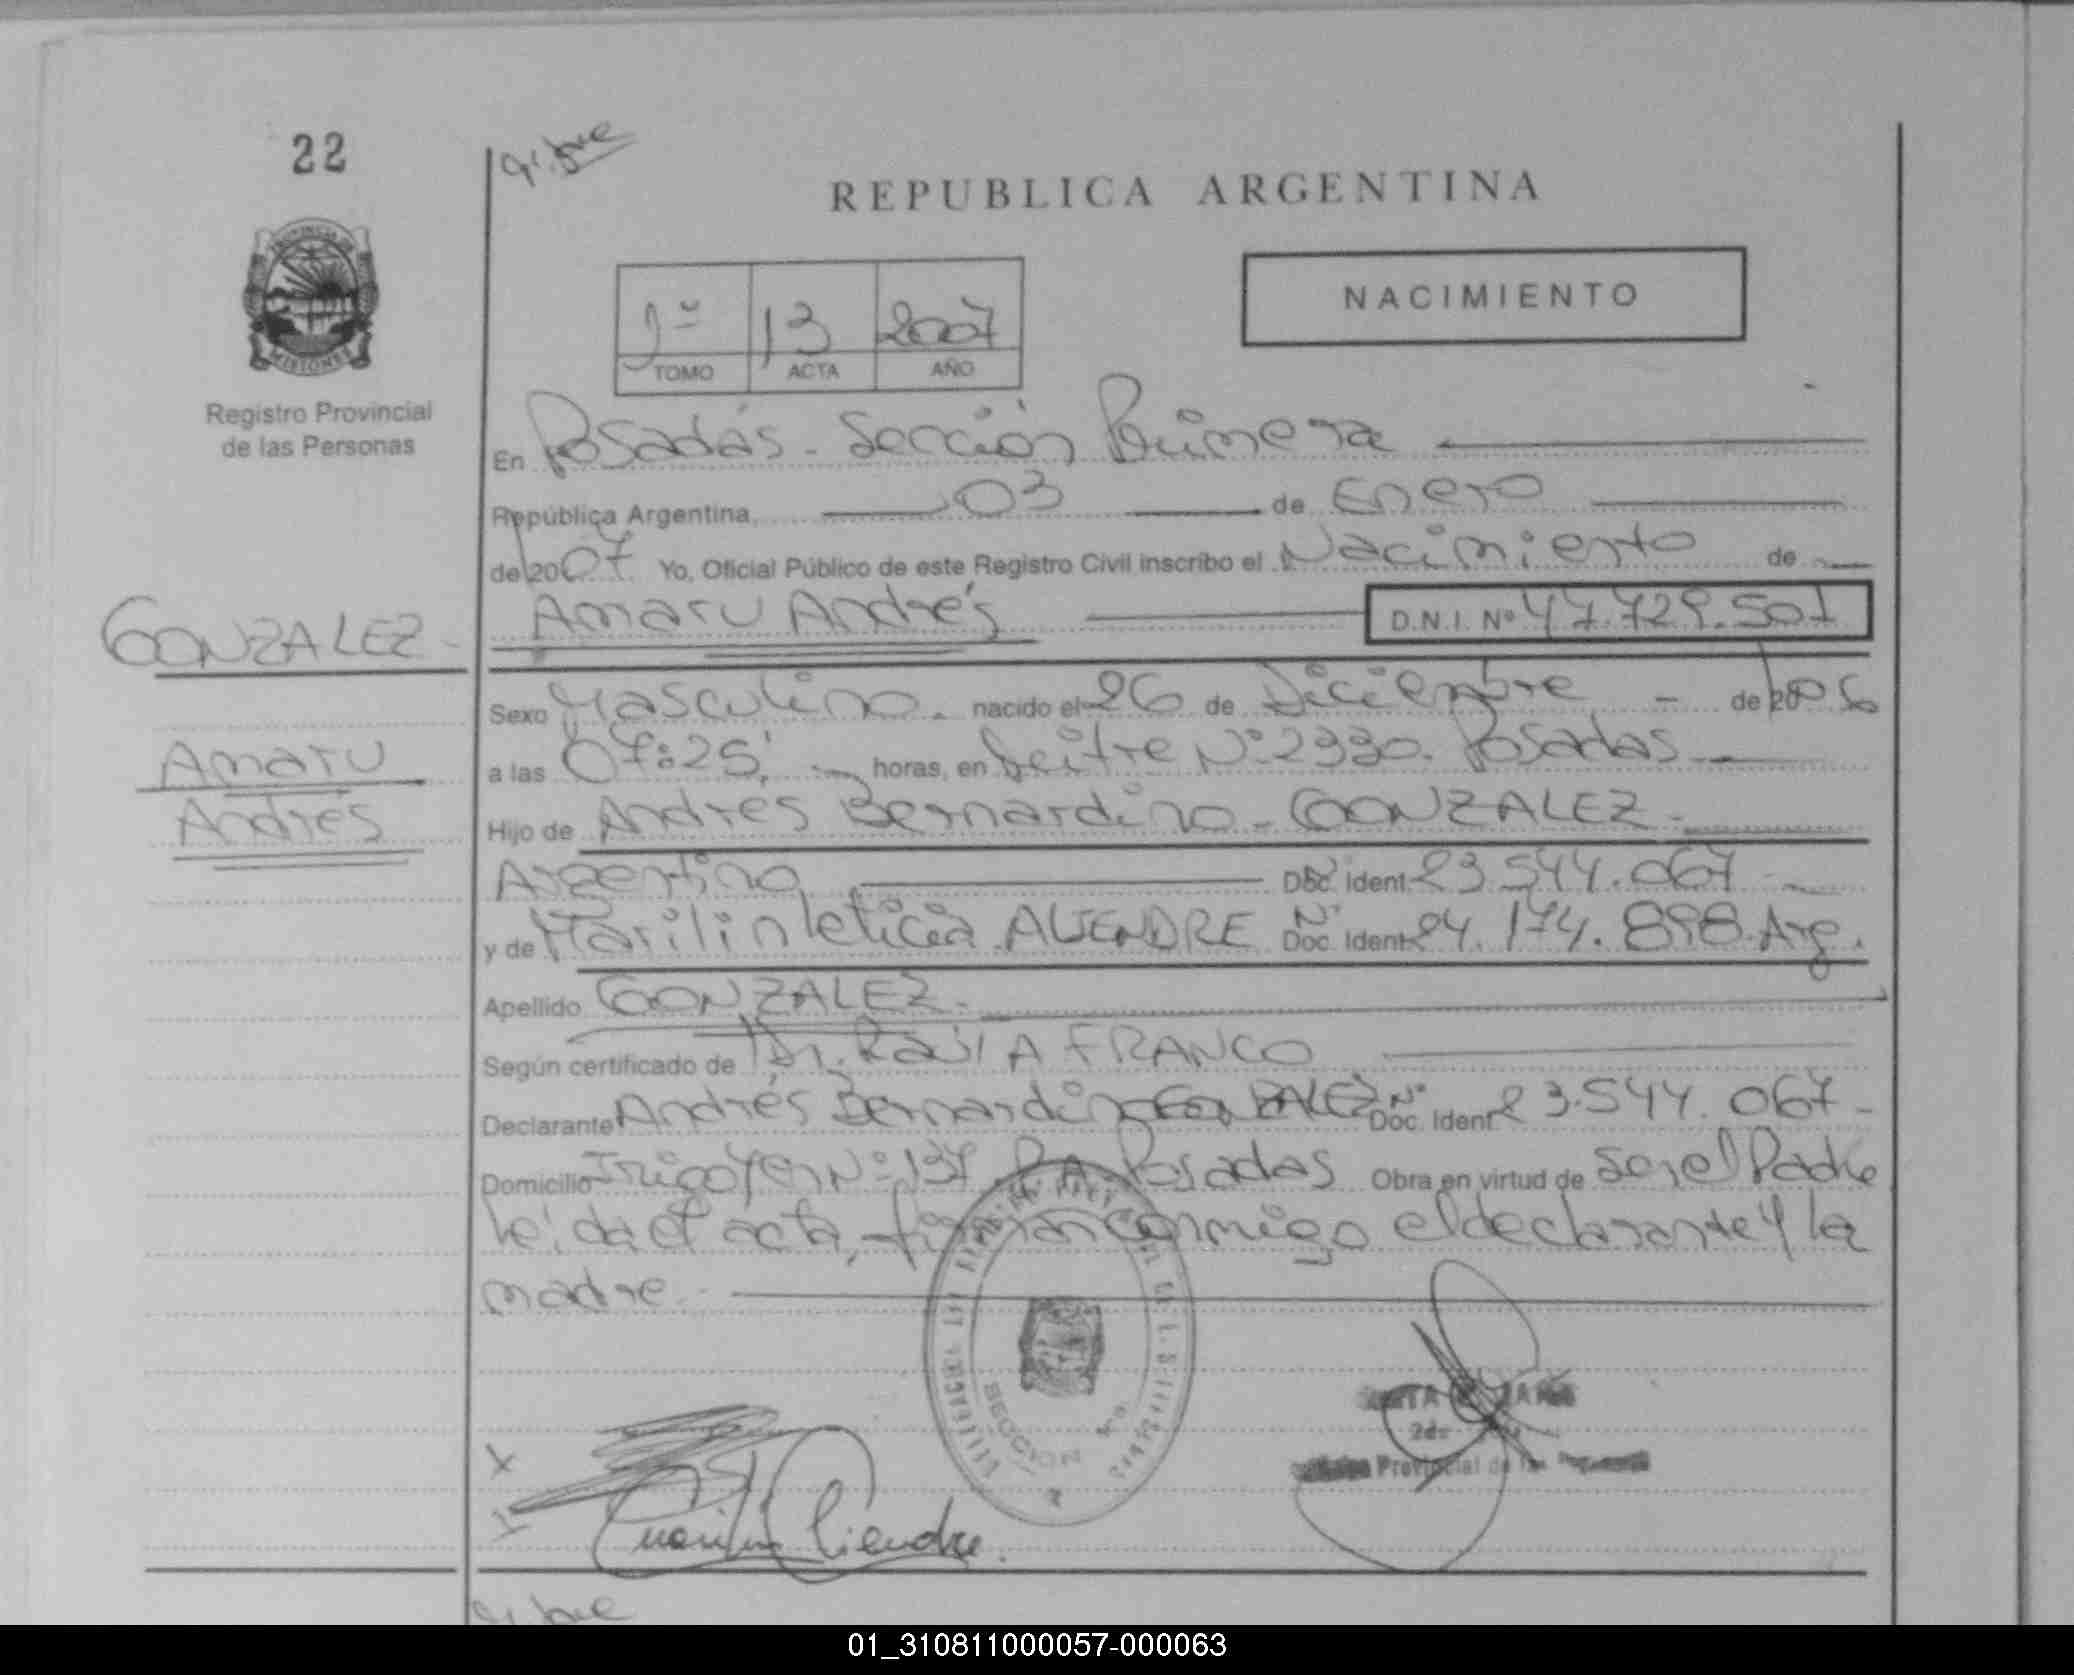 22
REPUBLICA ARGENTINA
PROVINCIA DE
MISIONES
Registro Provincial
de las Personas
NACIMIENTO
1º 13 2007
TOMO ACTA AÑO
En Posadas - Sección Primera
República Argentina, 03 de Enero
de 2007 Yo, Oficial Público de este Registro Civil inscribo el Nacimiento de
GONZALEZ - Amaru Andrés D.N.I. Nº 47.729.501
Sexo Masculino. nacido el 26 de Diciembre - de 2006
Amaru
Andrés
a las 07:25' horas, en Nº 2330. Posadas
Hijo de Andrés Bernardino - GONZALEZ -
Argentino Nº Doc. Ident 23.544.067 -
y de Marilin leticia ALIENDRE Nº Doc. Ident 24.174.898. Arg.
Apellido GONZALEZ -
Según certificado de Dr. FRANCO
Declarante Andrés Bernardino GONZALEZ Nº Doc. Ident 23.544.067 -
Domicilio Irigoyen Nº 137 Posadas Obra en virtud de ser el Padre
leída el acta, firman conmigo el declarante y la
madre.
SECCION
2da
Provincial de las
01_310811000057-000063